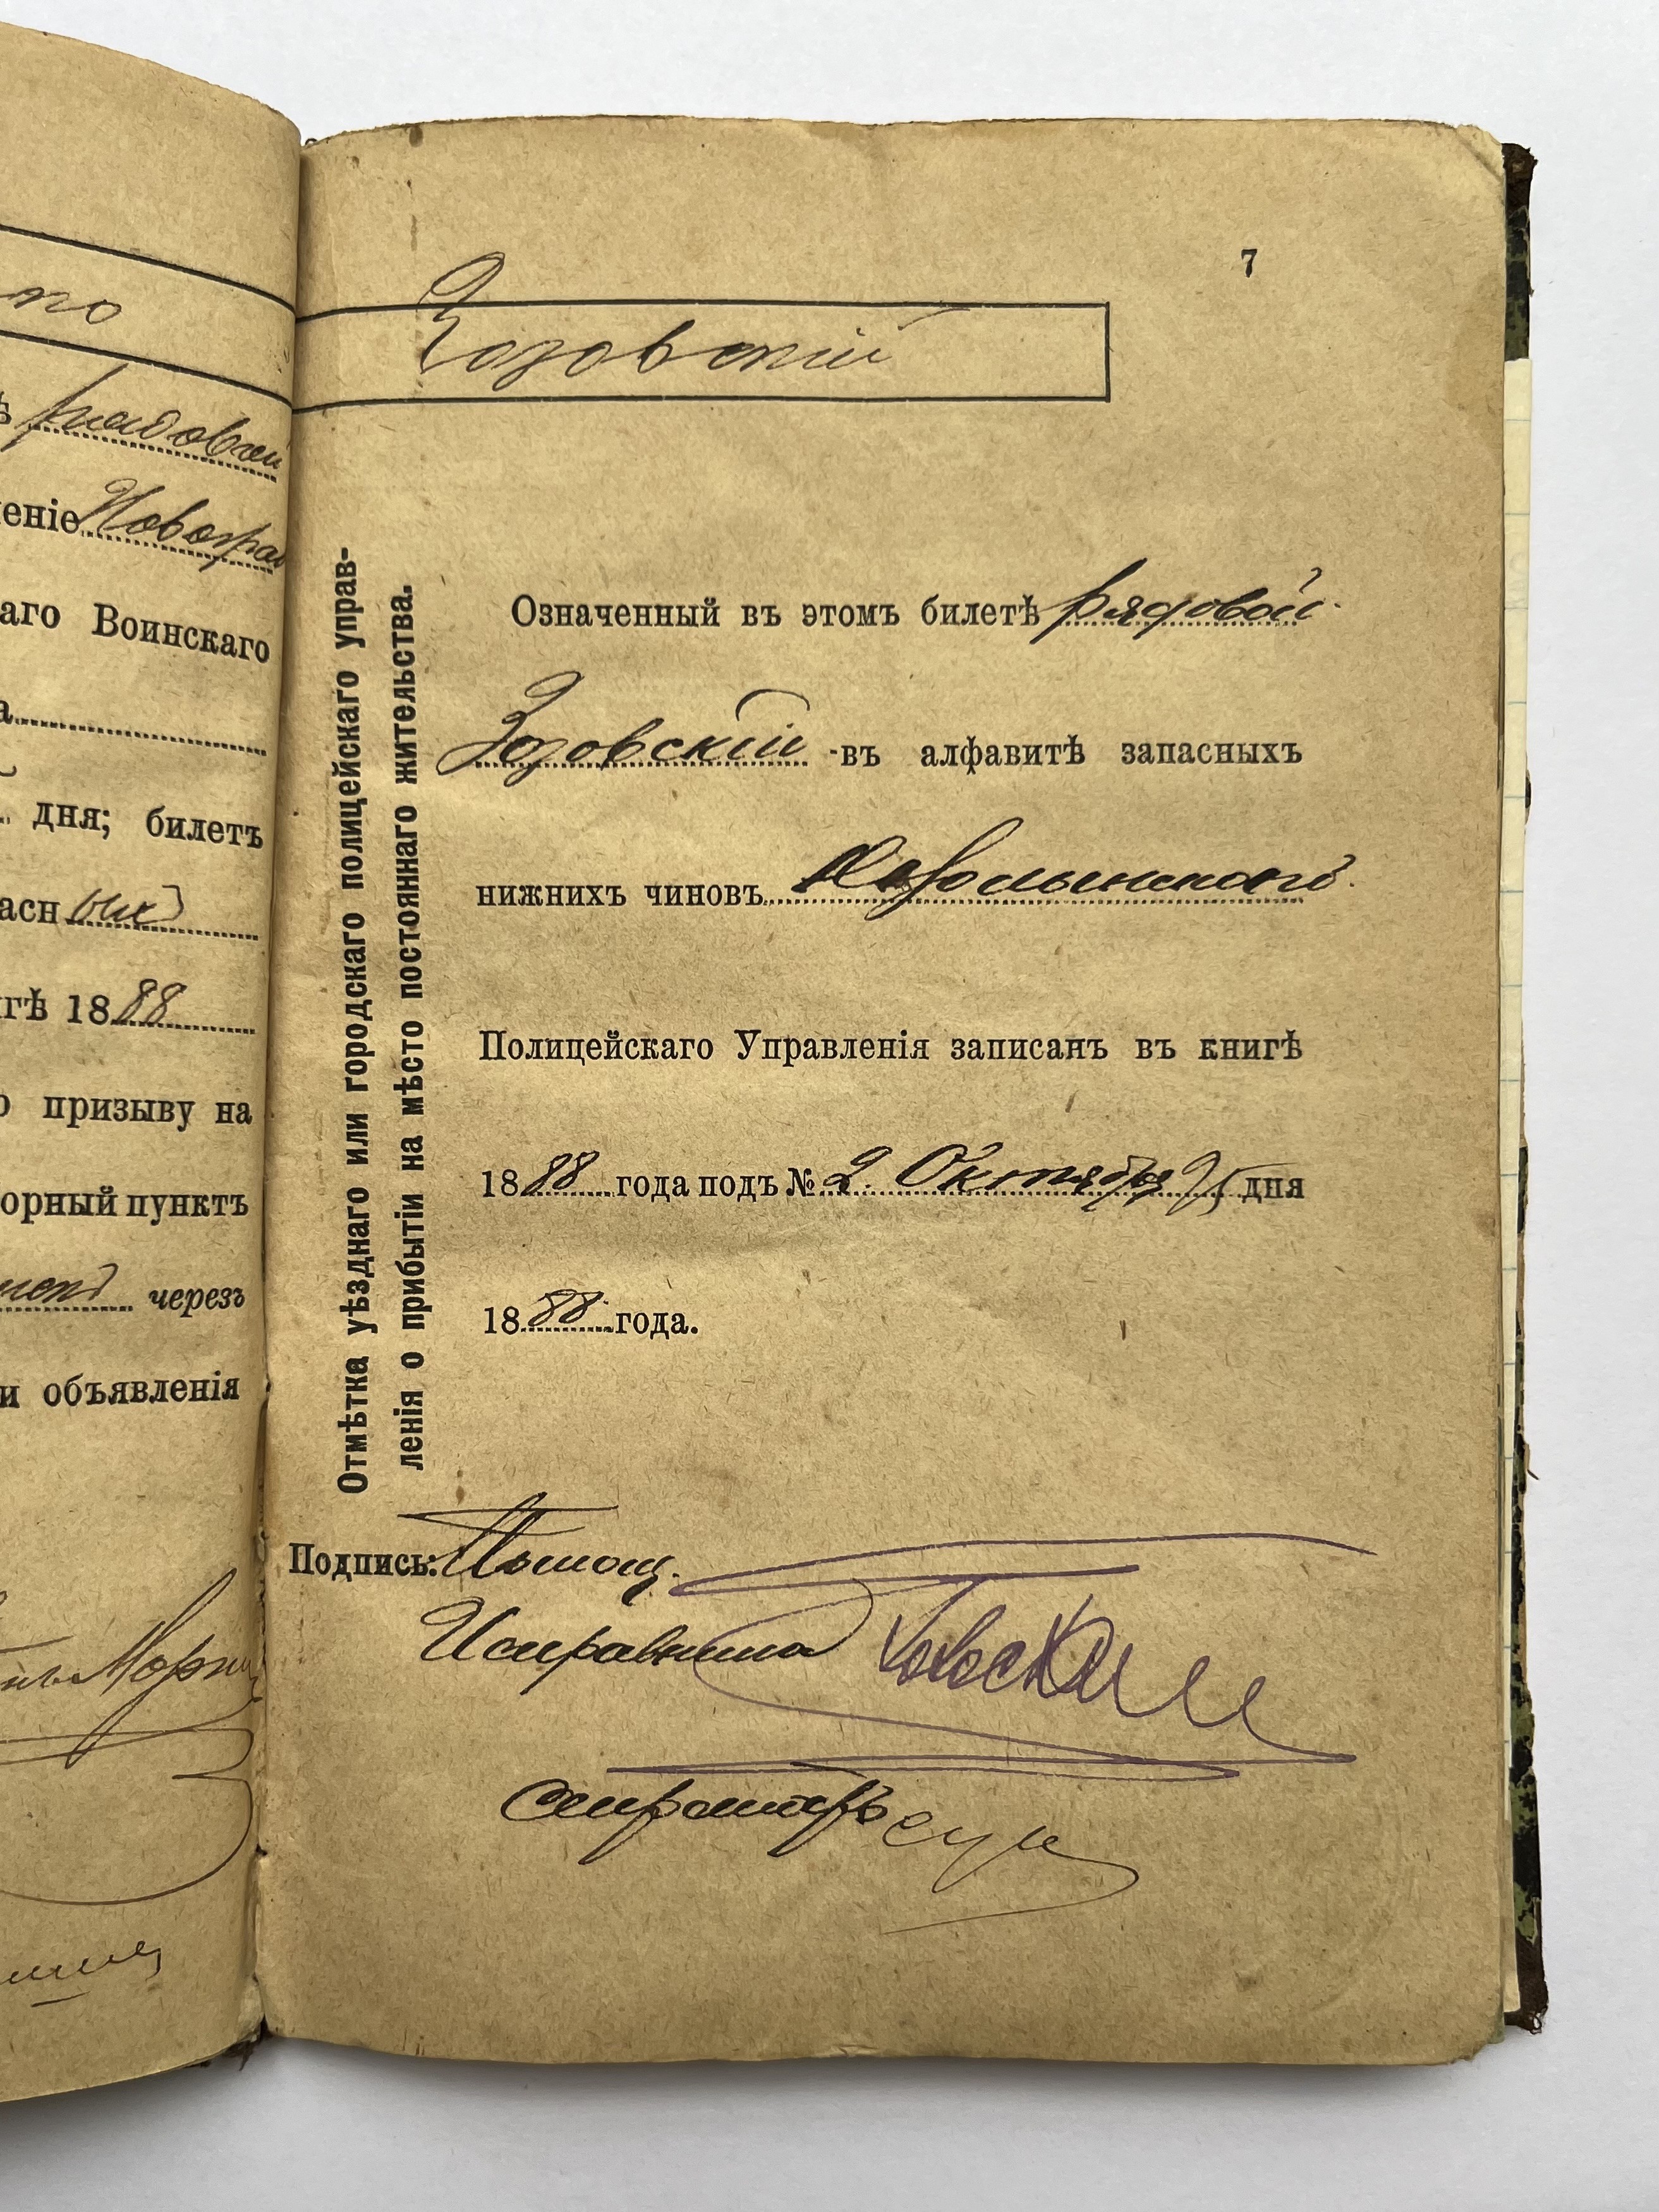 по
ѣ рядовой
еніе Новоград
аго Воинскаго
а
дня; билетъ
асн ыхъ
игѣ 1888
о призыву на
орный пунктъ
черезъ
и объявленія
7
Зозовскій
Отмѣтка уѣзднаго или городскаго полицейскаго управ-
ленія о прибытіи на мѣсто постояннаго жительства.
Означенный въ этомъ билетѣ рядовой
Зозовскій въ алфавитѣ запасныхъ
нижнихъ чиновъ
Полицейскаго Управленія записанъ въ книгѣ
1888 года подъ № 2. Октября 25 дня
1888 года.
Подпись: Помощ.
Исправника
Секретарь